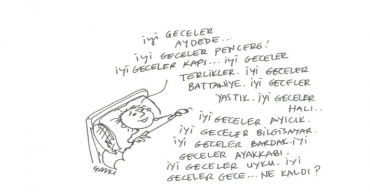 iyi GECELER
AYDEDE...
iyi GECELER PENCERE!
iyi GECELER KAPI... iyi GECELER
TERLİKLER. iyi GECELER
BATTANİYE. iyi GECELER
YASTIK. iyi GECELER
HALI..
iyi GECELER AYICIK.
iyi GECELER BİLGİSAYAR.
iyi GECELER BARDAK. iyi
GECELER AYAKKABI.
iyi GECELER UYKU. iyi
GECELER GECE... NE KALDI?